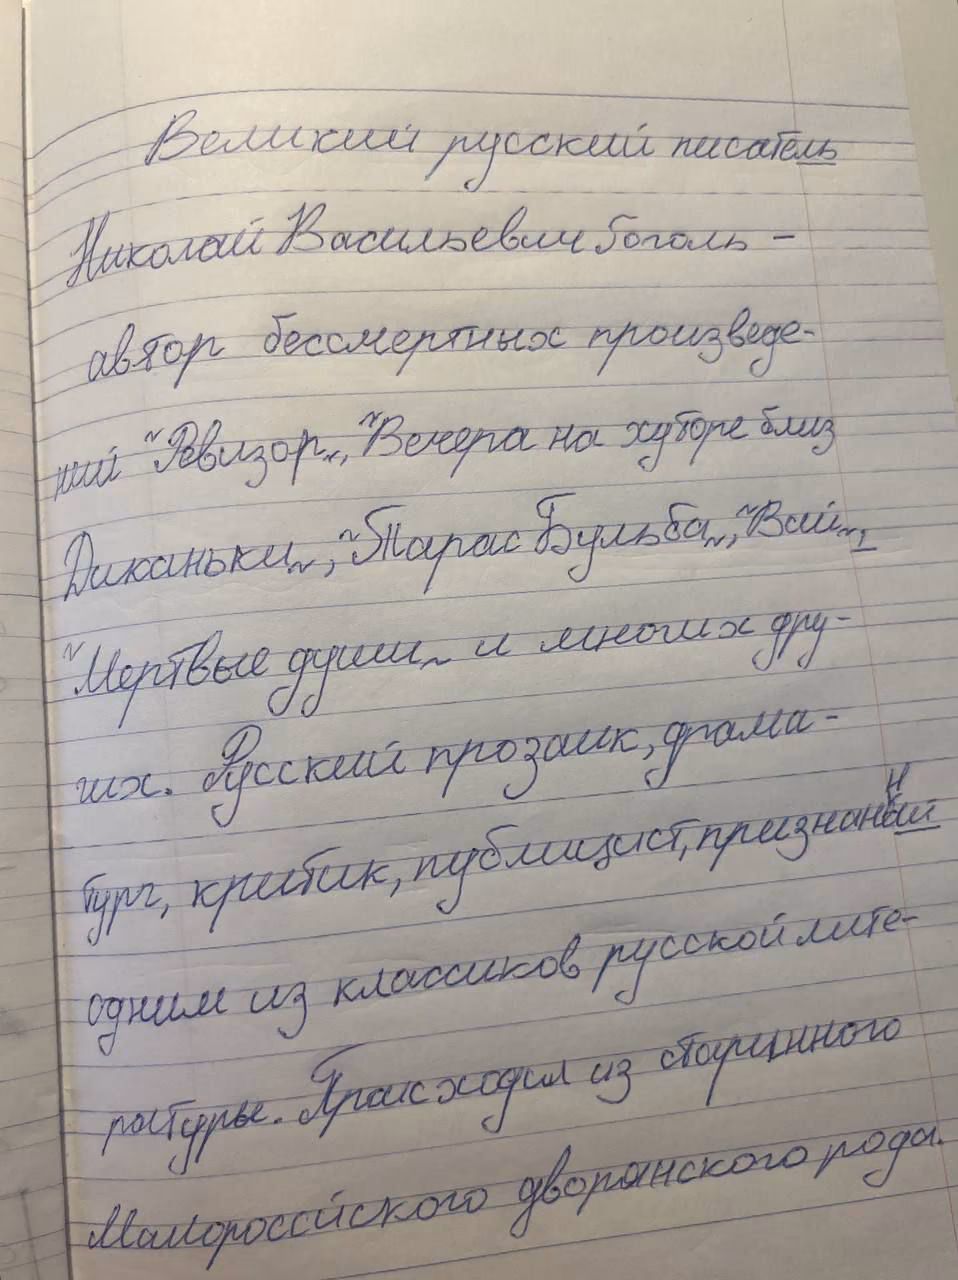 Великий русский писатель
Николай Васильевич Гоголь -
автор бессмертных произведе-
ний "Ревизор", "Вечера на хуторе близ
Диканьки", "Тарас Бульба", "Вий",
"Мертвые души" и многих дру-
гих. Русский прозаик, драма-
тург, критик, публицист, признанный
одним из классиков русской лите-
ратуры. Происходил из старинного
Малоросссйского дворянского рода.